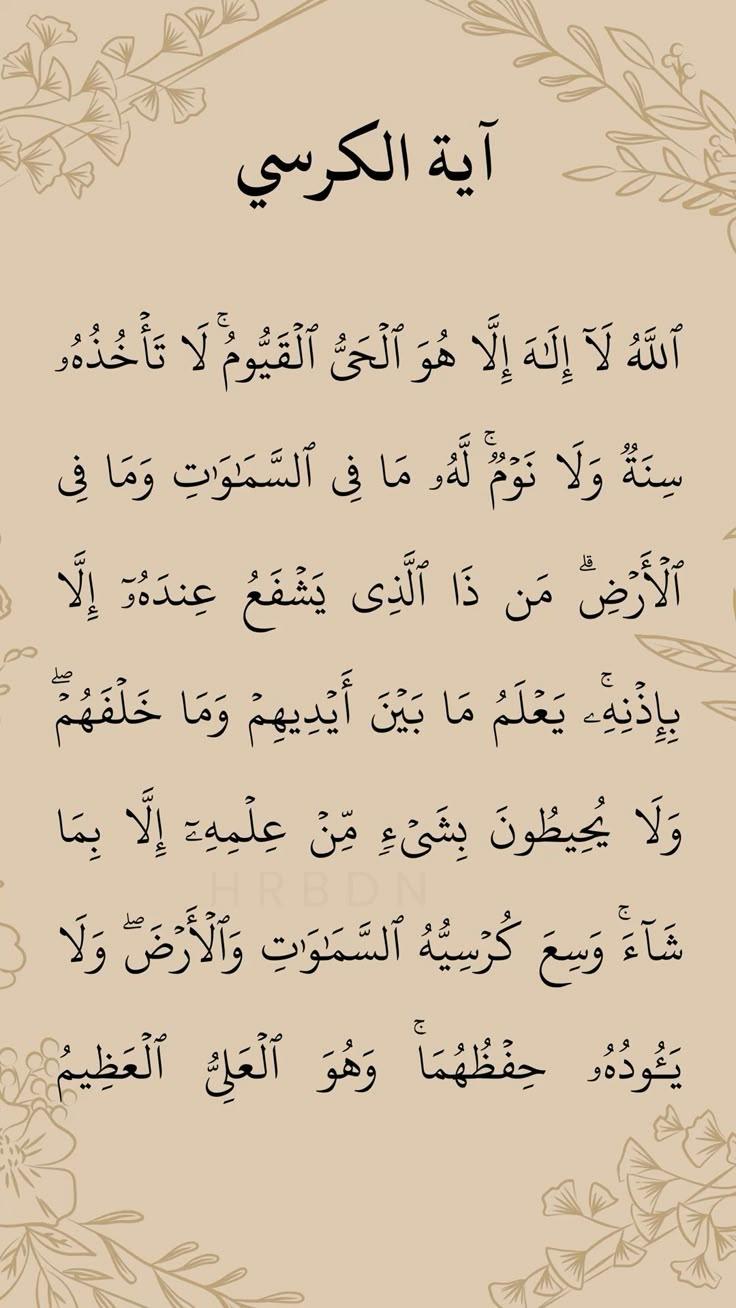 آية الكرسي
ٱللَّهُ لَآ إِلَـٰهَ إِلَّا هُوَ ٱلْحَىُّ ٱلْقَيُّومُ ۚ لَا تَأْخُذُهُۥ
سِنَةٌ وَلَا نَوْمٌ ۚ لَّهُۥ مَا فِى ٱلسَّمَـٰوَٰتِ وَمَا فِى
ٱلْأَرْضِ ۗ مَن ذَا ٱلَّذِى يَشْفَعُ عِندَهُۥٓ إِلَّا
بِإِذْنِهِۦ ۚ يَعْلَمُ مَا بَيْنَ أَيْدِيهِمْ وَمَا خَلْفَهُمْ ۖ
وَلَا يُحِيطُونَ بِشَىْءٍ مِّنْ عِلْمِهِۦٓ إِلَّا بِمَا
HRBDN
شَآءَ ۚ وَسِعَ كُرْسِيُّهُ ٱلسَّمَـٰوَٰتِ وَٱلْأَرْضَ ۖ وَلَا
يَـُٔودُهُۥ حِفْظُهُمَا ۚ وَهُوَ ٱلْعَلِىُّ ٱلْعَظِيمُ